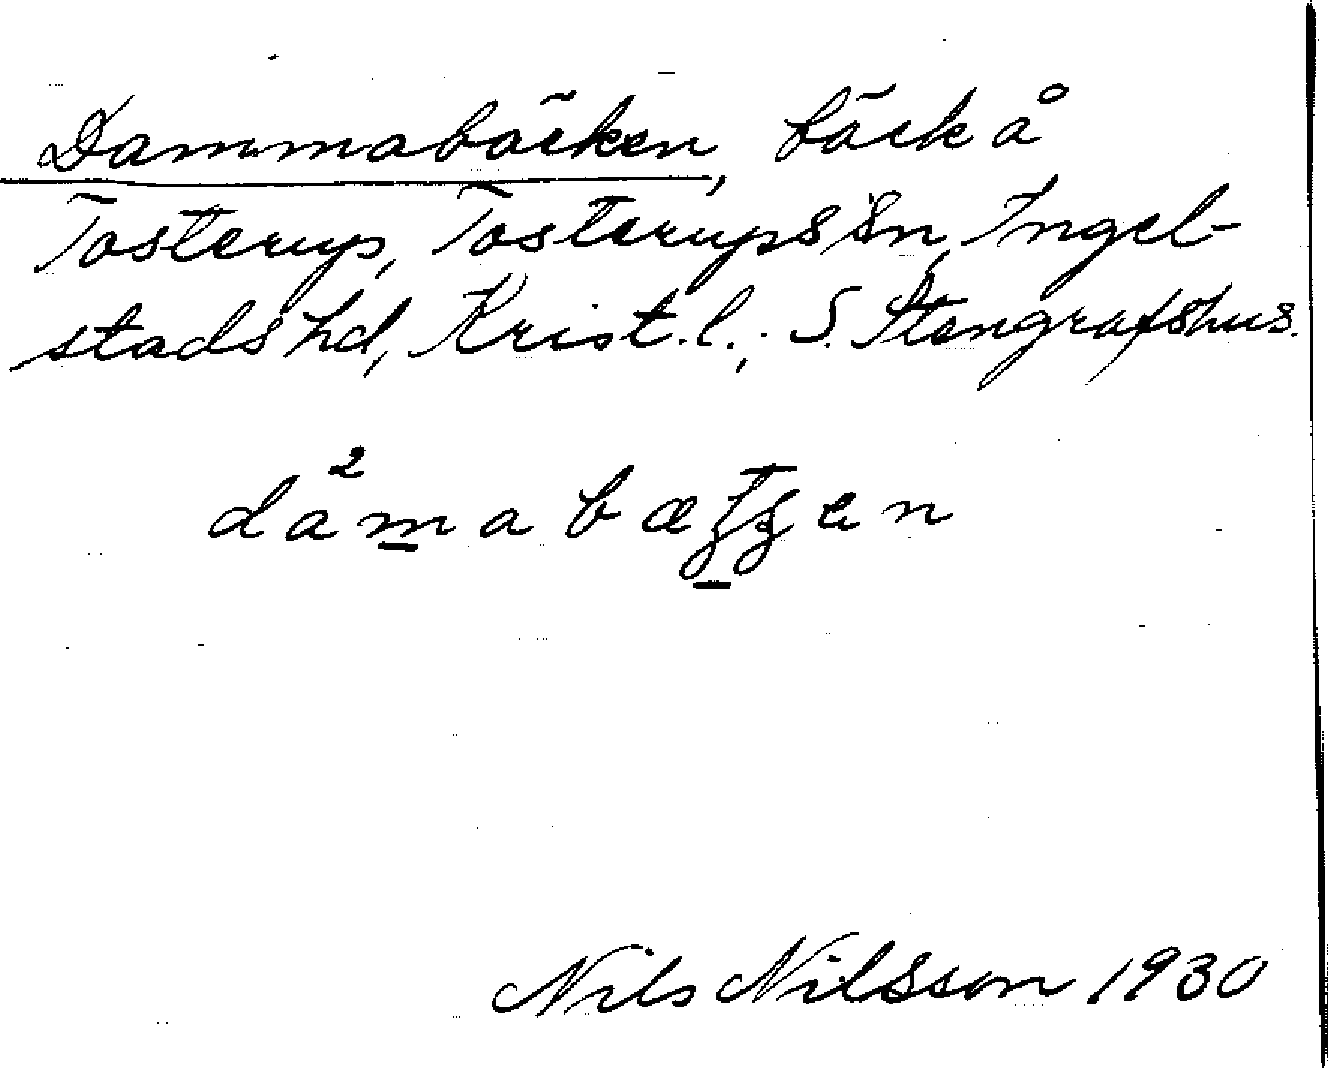 Dammabäcken, bäck å
Tosterup, Tosterups sn, Ingel-
stads hd, Krist. l.; S. Stengrafshus.
Nils Nilsson 1930